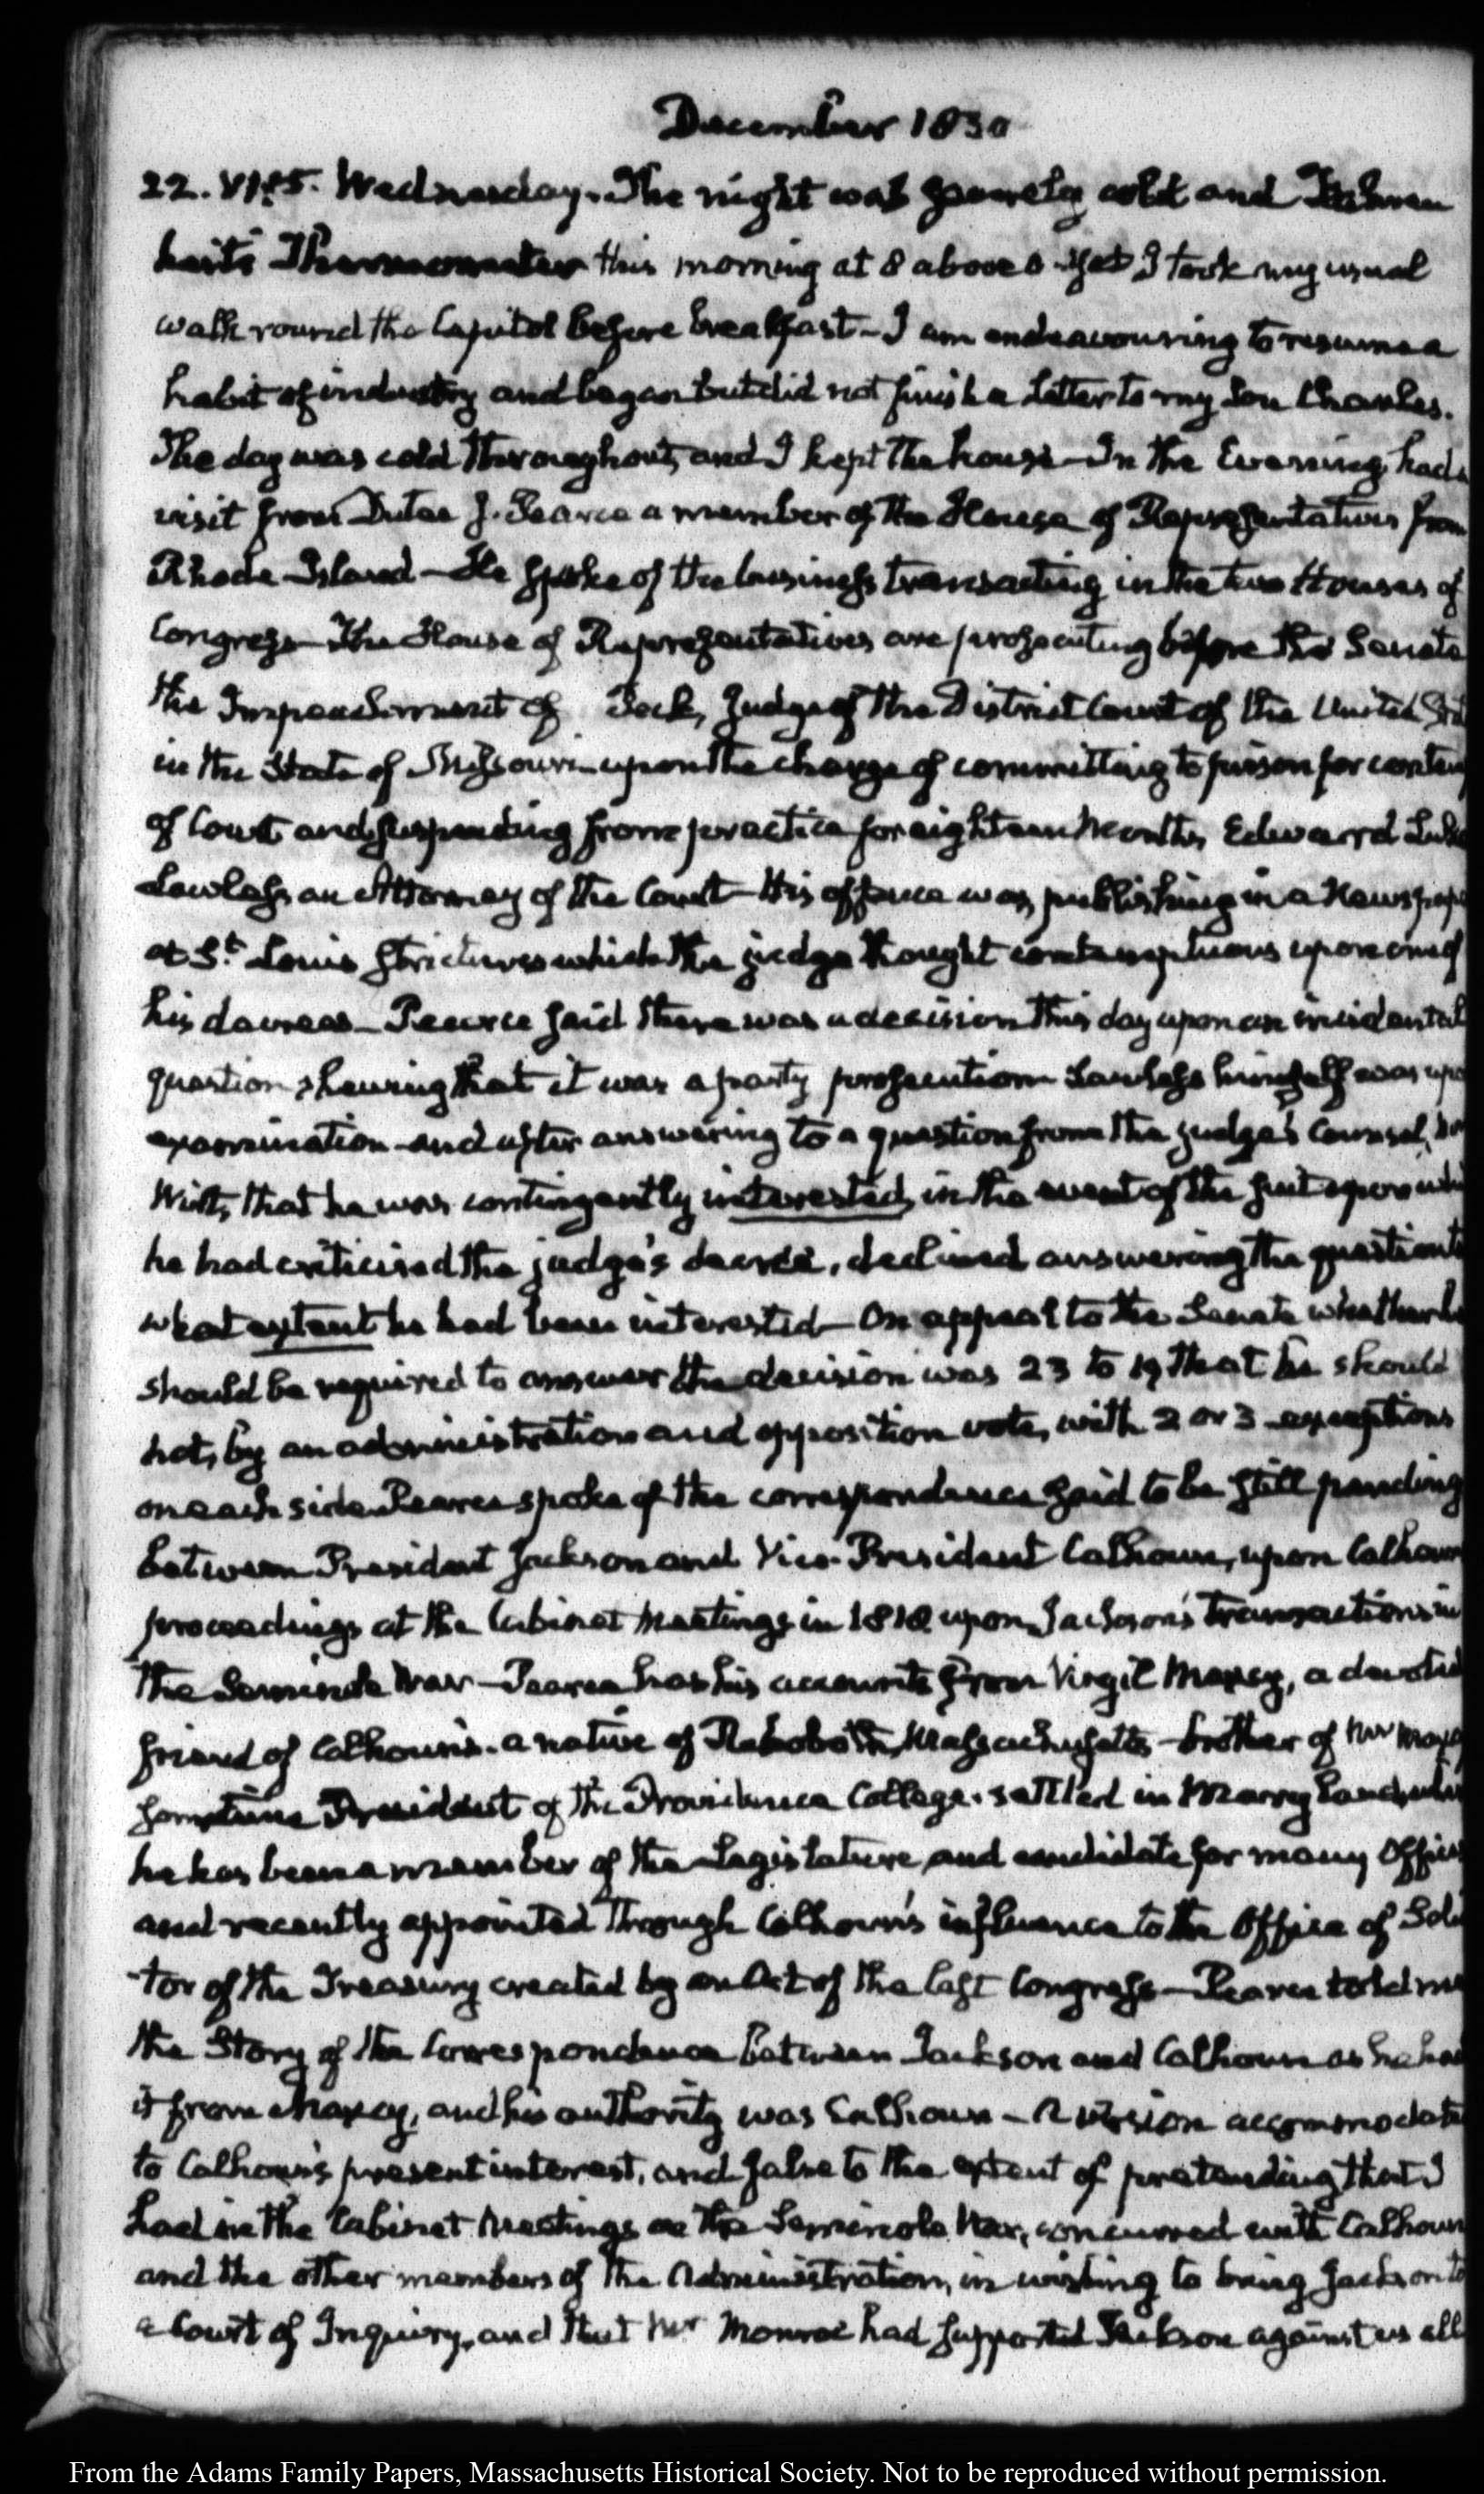 December 1830
22. VI:15. Wednesday. The night was severely cold and Fahren
heit's Thermometer this morning at 8 above 0 yet I took my usual
walk round the Capitol before breakfast - I am endeavouring to resume a
habit of industry and began but did not finish a Letter to my Son Charles.
The day was cold throughout, and I kept the house - In the Evening, had a
visit from Dutee J. Pearce a member of the House of Representatives from
Rhode-Island - He spoke of the business transacting in the two Houses of
Congress - The House of Representatives are prosecuting before the Senate
the Impeachment of Peck, Judge of the District Court of the United St
in the State of Missouri - upon the charge of committing to prison for contem
of Court and suspending from practice for eighteen Months, Edward Luke
Lawless an Attorney of the Court - His offence was publishing in a Newspape
at St. Louis strictures which the judge thought contemptuous upon one of
his decrees - Pearce said there was a decision this day upon an incidental
question shewing that it was a party prosecution Lawless himself was upo
examination - and after answering to a question from the judge's Counsel,
Wirt, that he was contingently interested, in the event of the suit upon whi
he had criticised the judge's decree, declined answering the question t
what extent he had been interested - On appeal to the Senate whether he
should be required to answer the decision was 23 to 19 that he should
not, by an administration and opposition vote, with 2 or 3 exceptions
on each side Pearce spoke of the correspondence said to be still pending
between President Jackson and Vice-President Calhoun, upon Calhoun
proceedings at the Cabinet Meetings in 1818 upon Jackson's transactions in
the Seminole War - Pearce has his accounts from Virgil Maxcy, a devoted
friend of Calhoun's. a native of Rehoboth, Massachusetts - brother of Mr Maxc
sometime President of the Providence College. settled in Maryland, whe
he has been a member of the Legislature, and candidate for many Offices
and recently appointed through Calhoun's influence to the Office of Soli
tor of the Treasury created by an Act of the last Congress - Pearce told me
the Story of the Correspondence between Jackson and Calhoun as he had
it from Maxcy, and his authority was Calhoun - A version accommodate
to Calhoun's present interest, and false to the extent of pretending that I
had in the Cabinet Meetings on the Seminole War, concurred with Calhoun
and the other members of the Administration, in wishing to bring Jackson to
a Court of Inquiry, and that Mr Monroe had supported Jackson against us all
From the Adams Family Papers, Massachusetts Historical Society. Not to be reproduced without permission.